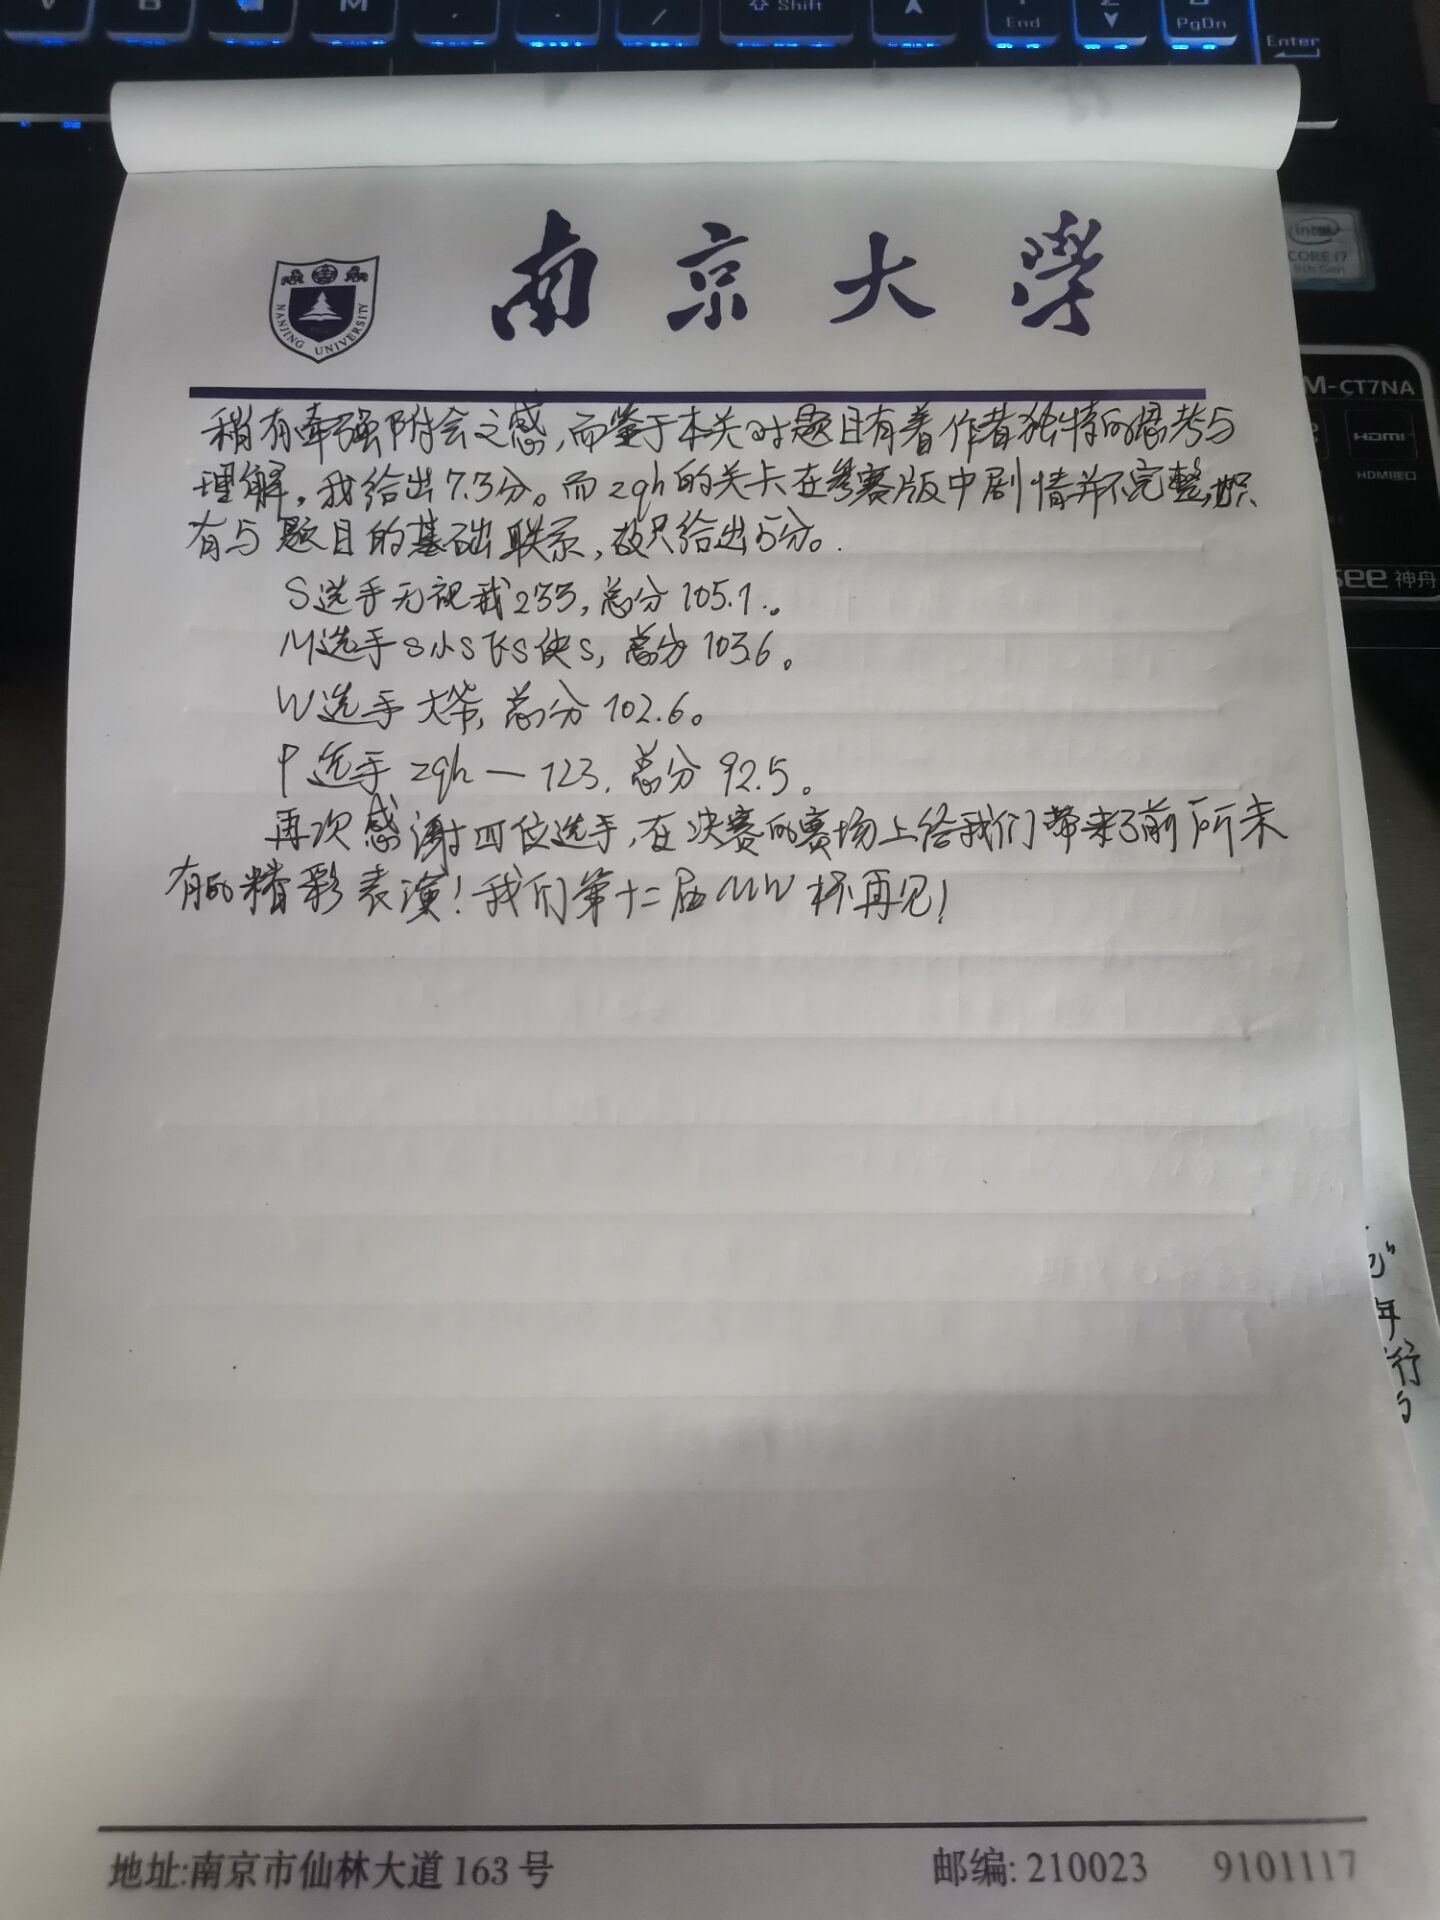 Shift
End
PgDn
Enter
intel
CORE i7
9th Gen
南京大学
NANJING UNIVERSITY
M-CT7NA
HDMI
HDMI接口
see 神舟
稍有牵强附会之感,而鉴于本关对题目有着作者独特的思考与
理解,我给出7.3分。而zqh的关卡在参赛版中剧情并不完整,只
有与题目的基础联系,故只给出5分。
S选手无视我233,总分105.1。
M选手S小S飞S侠S,总分103.6。
W选手大爷,总分102.6。
P选手zqh—123,总分92.5。
再次感谢四位选手,在决赛的赛场上给我们带来了前所未
有的精彩表演!我们第十二届MW杯再见!
年
行
地址:南京市仙林大道163号 邮编:210023 9101117